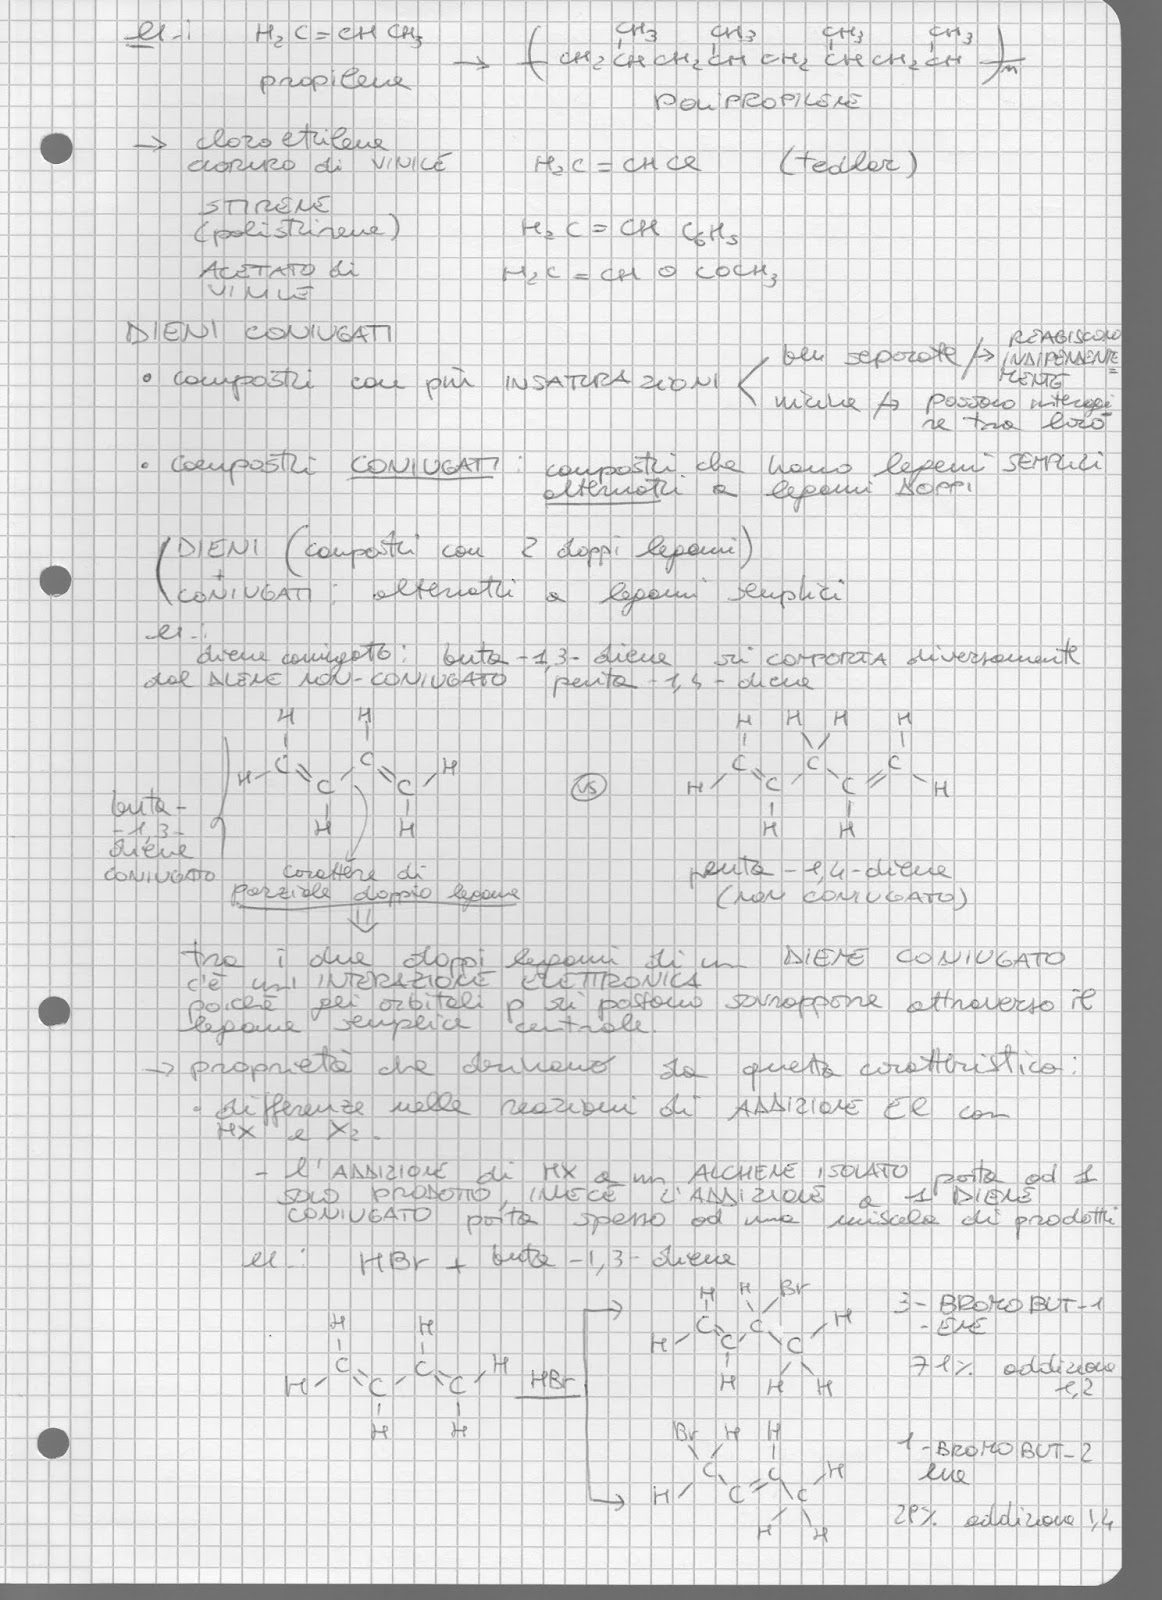 es.:
H₂C=CHCH₃
propilene
→
CH₃ CH₃ CH₃ CH₃
( CH₂ CH CH₂ CH CH₂ CH CH₂ CH )n
POLIPROPILENE
→ cloro etilene
cloruro di VINILE H₂C=CHCl (tedlar)
STIRENE
(polistirene) H₂C=CH C₆H₅
ACETATO di
VINILE H₂C=CH O COCH₃
DIENI CONIUGATI
• composti con più INSATURAZIONI
ben separate → REAGISCONO
INDIPENDENTE=
MENTE
vicine → possono interagi
re tra loro
• composti CONIUGATI: composti che hanno legami SEMPLICI
alternati a legami DOPPI
DIENI (composti con 2 doppi legami)
+
CONIUGATI: alternati a legami semplici
es.:
diene coniugato: buta-1,3-diene si COMPORTA diversamente
dal DIENE NON-CONIUGATO penta-1,4-diene
H H
H C C H
C C
H H
buta-
-1,3-
diene
CONIUGATO
carattere di
parziale doppio legame
⇓
vs
H H H H
C C C
H C C H
H H
penta-1,4-diene
(NON CONIUGATO)
tra i due doppi legami di un DIENE CONIUGATO
c'è un'INTERAZIONE ELETTRONICA
poiché gli orbitali p si possono sovrapporre attraverso il
legame semplice centrale.
→ proprietà che derivano da questa caratteristica:
• differenze nelle reazioni di ADDIZIONE El con
HX e X₂.
- l'ADDIZIONE di HX a un ALCHENE ISOLATO porta ad 1
SOLO PRODOTTO, INVECE L'ADDIZIONE a 1 DIENE
CONIUGATO porta spesso ad una miscela di prodotti
es.: HBr + buta-1,3-diene
H H
C C H
H C C
H H
HBr
H H Br
H C C H
C C
H H H
3-BROMOBUT-1
-ENE
71% addizione
1,2
Br H H
C C H
H C C
H H
1-BROMOBUT-2
ene
29% addizione 1,4